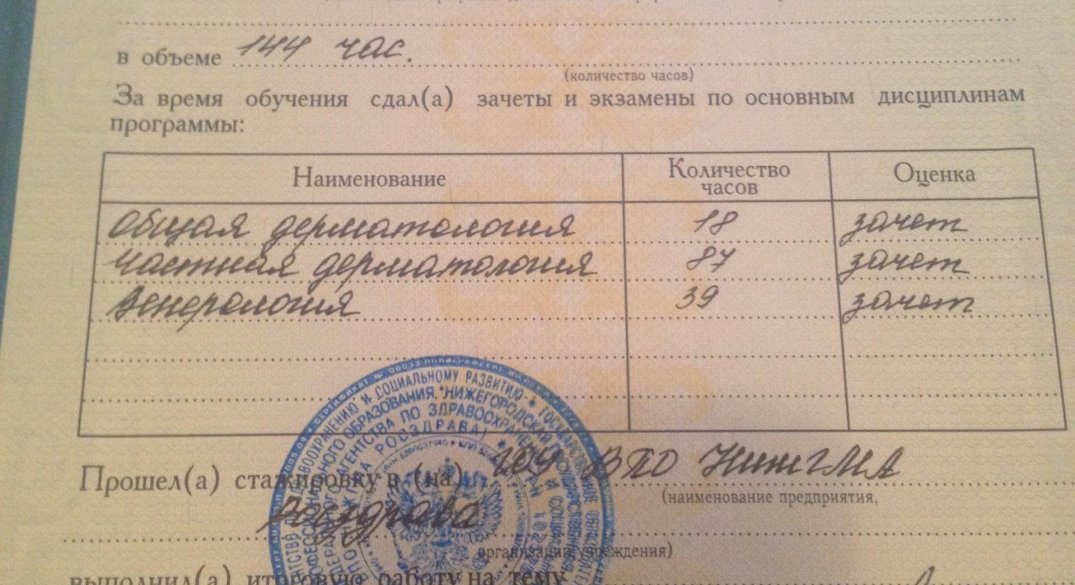 в объеме 144 час.
(количество часов)
За время обучения сдал(а) зачеты и экзамены по основным дисциплинам
программы:
Наименование Количество часов Оценка
Общая дерматология 18 зачет
Частная дерматология 87 зачет
Венерология 39 зачет
Прошел(а) стажировку в (на) ГОУ ВПО НижГМА
(наименование предприятия,
Росздрава
организации, учреждения)
выполнил(а) итоговую работу на тему
СОЦИАЛЬНОМУ РАЗВИТИЮ
НИЖЕГОРОДСКАЯ
АГЕНТСТВА ПО ЗДРАВООХРАНЕНИЮ И
РОСЗДРАВА